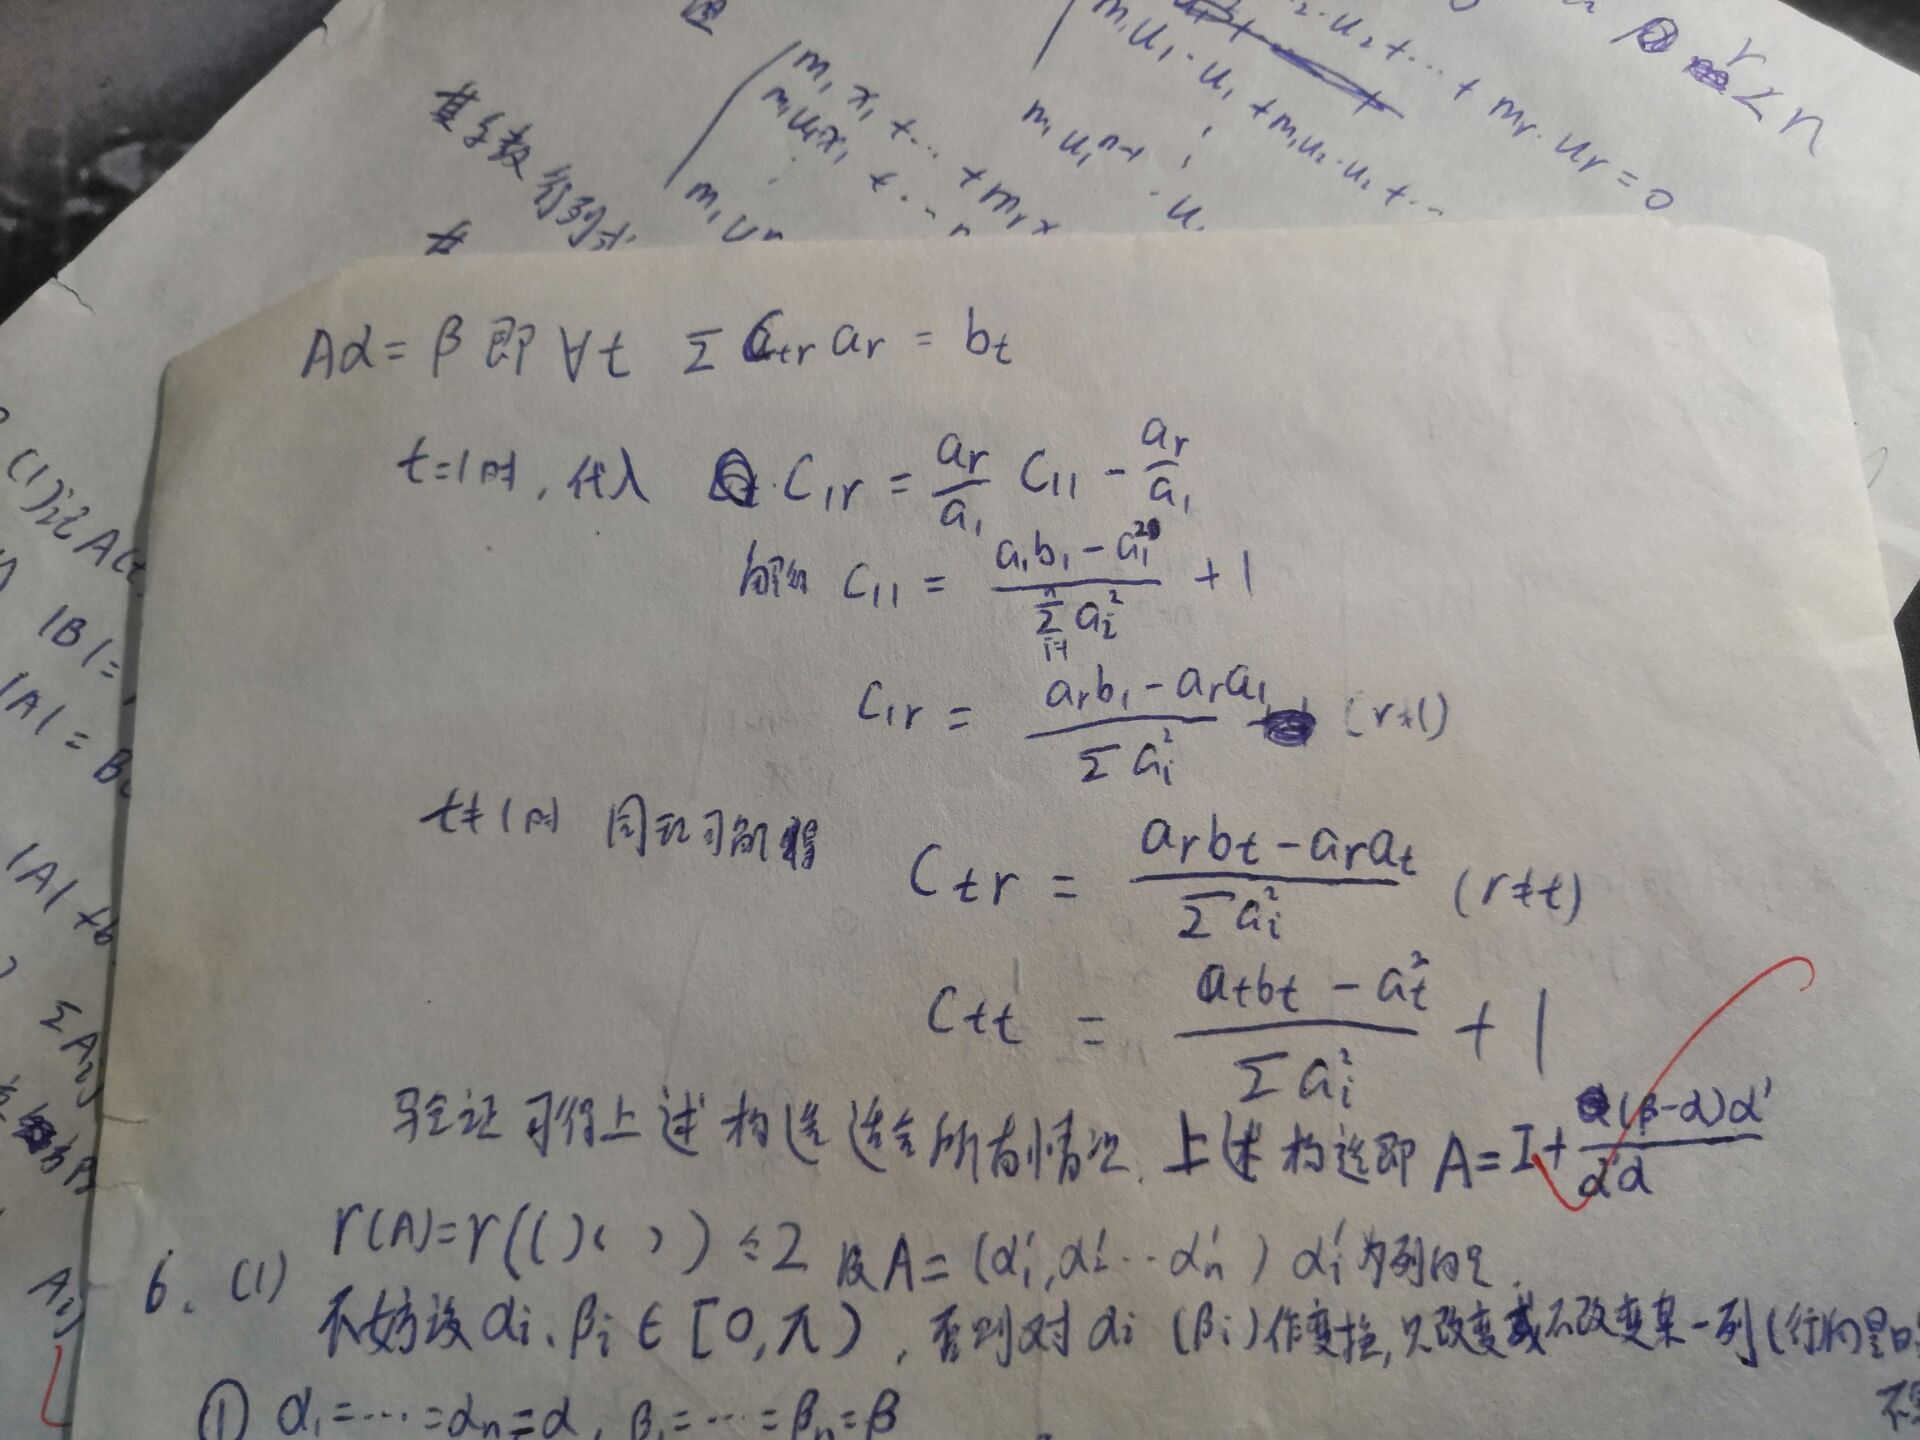 其系数行列式
m₁x₁+⋯+mᵣx
m₁u₁x₁+⋯
m₁u₁ⁿ⁻¹·u
m₁u₁·u₁+m₁u₂·u₂+⋯
u₂+⋯+mᵣ·uᵣ=0
r<n
Aα=β 即 ∀t Σ Cₜᵣ aᵣ = bₜ
t=1时, 代入 C₁ᵣ = \frac{aᵣ}{a₁} C₁₁ - \frac{aᵣ}{a₁}
解得 C₁₁ = \frac{a₁b₁-a₁²}{\sum_{i=1}^{n} aᵢ²} + 1
C₁ᵣ = \frac{aᵣb₁-aᵣa₁}{Σaᵢ²} (r≠1)
t≠1时 同理可解得 Cₜᵣ = \frac{aᵣbₜ-aᵣaₜ}{Σaᵢ²} (r≠t)
Cₜₜ = \frac{aₜbₜ-aₜ²}{Σaᵢ²} + 1
验证可得上述构造适合所有情况. 上述构造即 A=I+\frac{(β-α)α'}{α'α}
6. (1) r(A)=r(( )( )) ≤2 设A=(α₁',α₂'⋯αₙ') αᵢ'为列向量.
不妨设 αᵢ、βᵢ∈[0,π), 否则对αᵢ(βᵢ)作变换,只改变或不改变某一列(行)向量
① α₁=⋯=αₙ=α, β₁=⋯=βₙ=β
|B|=
|A|=
|A|+